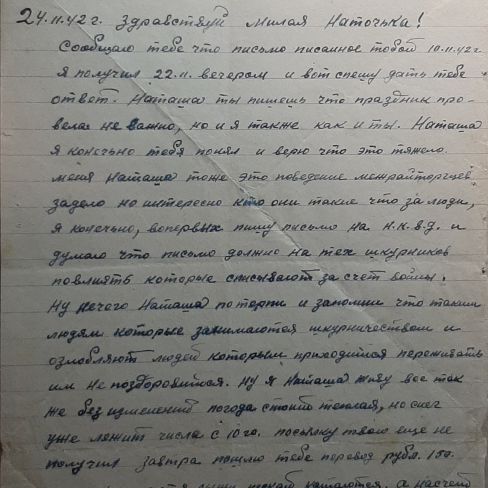 24.11.42 г. Здравствуй милая Наточька!
Сообщаю тебе что письмо писанное тобой 10.11.42 г
я получил 22.11. вечером и вот спешу дать тебе
ответ. Наташа ты пишешь что праздник про-
вела не важно, но и я также как и ты. Наташа
я конечно тебя понял и верю что это тяжело.
меня Наташа тоже это поведение межрайторгцев
задело но интересно кто они такие что за люди,
я конечно, вопервых пишу письмо на Н.К.В.Д. и
думаю что письмо должно на тех шкурников
повлиять которые списывают за счет войны.
Ну нечего Наташа потерпи и запомни что таким
людям которые занимаются шкурничеством и
озлобляют людей которым приходится переживать
им не поздоровится. Ну я Наташа живу все так
же без изменений погода стоит теплая, но снег
уже лежит числа с 10 го. посылку твою еще не
получил завтра пошлю тебе перевод рубл. 150.
катаются. а насчет